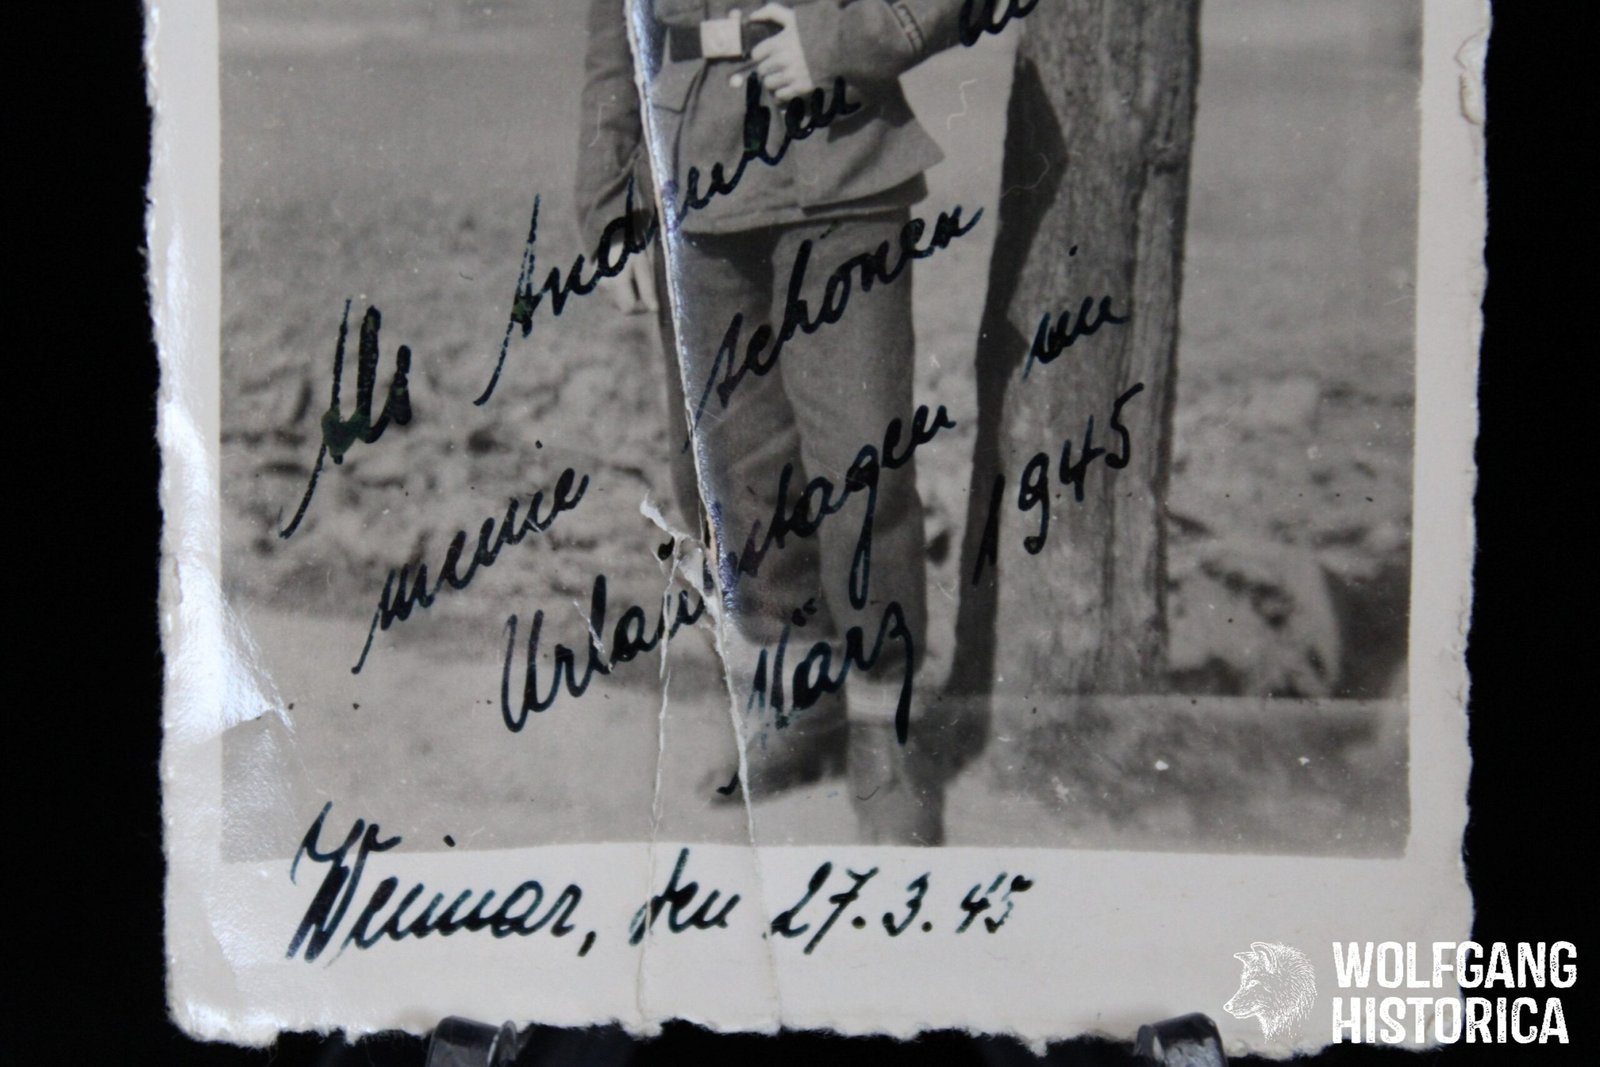 Als Andenken an
meine schönen
Urlaubstagen im
März 1945
Weimar, den 27.3.45
WOLFGANG
HISTORICA